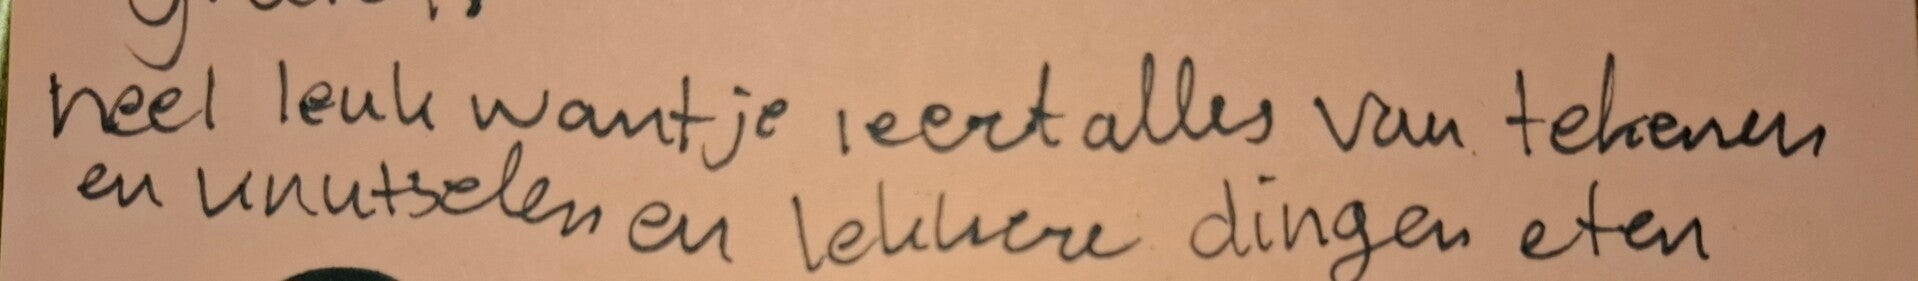 heel leuk want je leert alles van tekenen
en knutselen en lekkere dingen eten